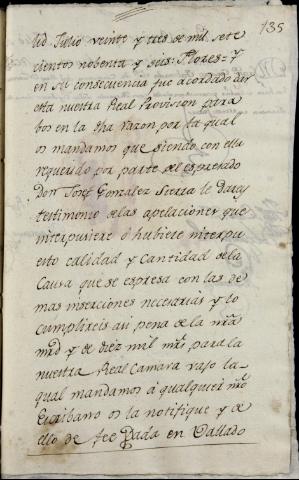 135
lid Julio veinte y tres de mil sete
cientos nobenta y seis: Flores= Y
en su consecuencia fue acordado dar
esta nuestra Real Provision para
bos en la dha razon por la qual
os mandamos que siendo con ella
requerido por parte del espresado
Don Josef Gonzalez Sierra le deis
testimonio de las apelaciones que
interpusiere ó hubiere interpu
esto calidad y Cantidad de la
Causa que se espresa con las de
mas inserciones necesarias y lo
cumplireis asi pena de la nrã
mrd y de diez mil mrs para la
nuestra Real Camara vajo la
qual mandamos á qualquier nrõ
Escribano os la notifique y de
ello de fee Dada en Vallado